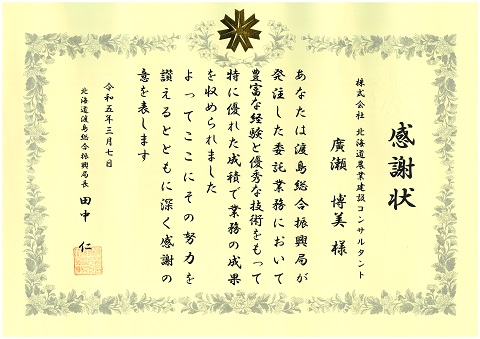 感謝状
株式会社 北海道農業建設コンサルタント
廣瀬 博美 様
あなたは渡島総合振興局が
発注した委託業務において
豊富な経験と優秀な技術をもって
特に優れた成績で業務の成果
を収められました
よってここにその努力を
讃えるとともに深く感謝の
意を表します
令和五年三月七日
北海道渡島総合振興局長 田中 仁